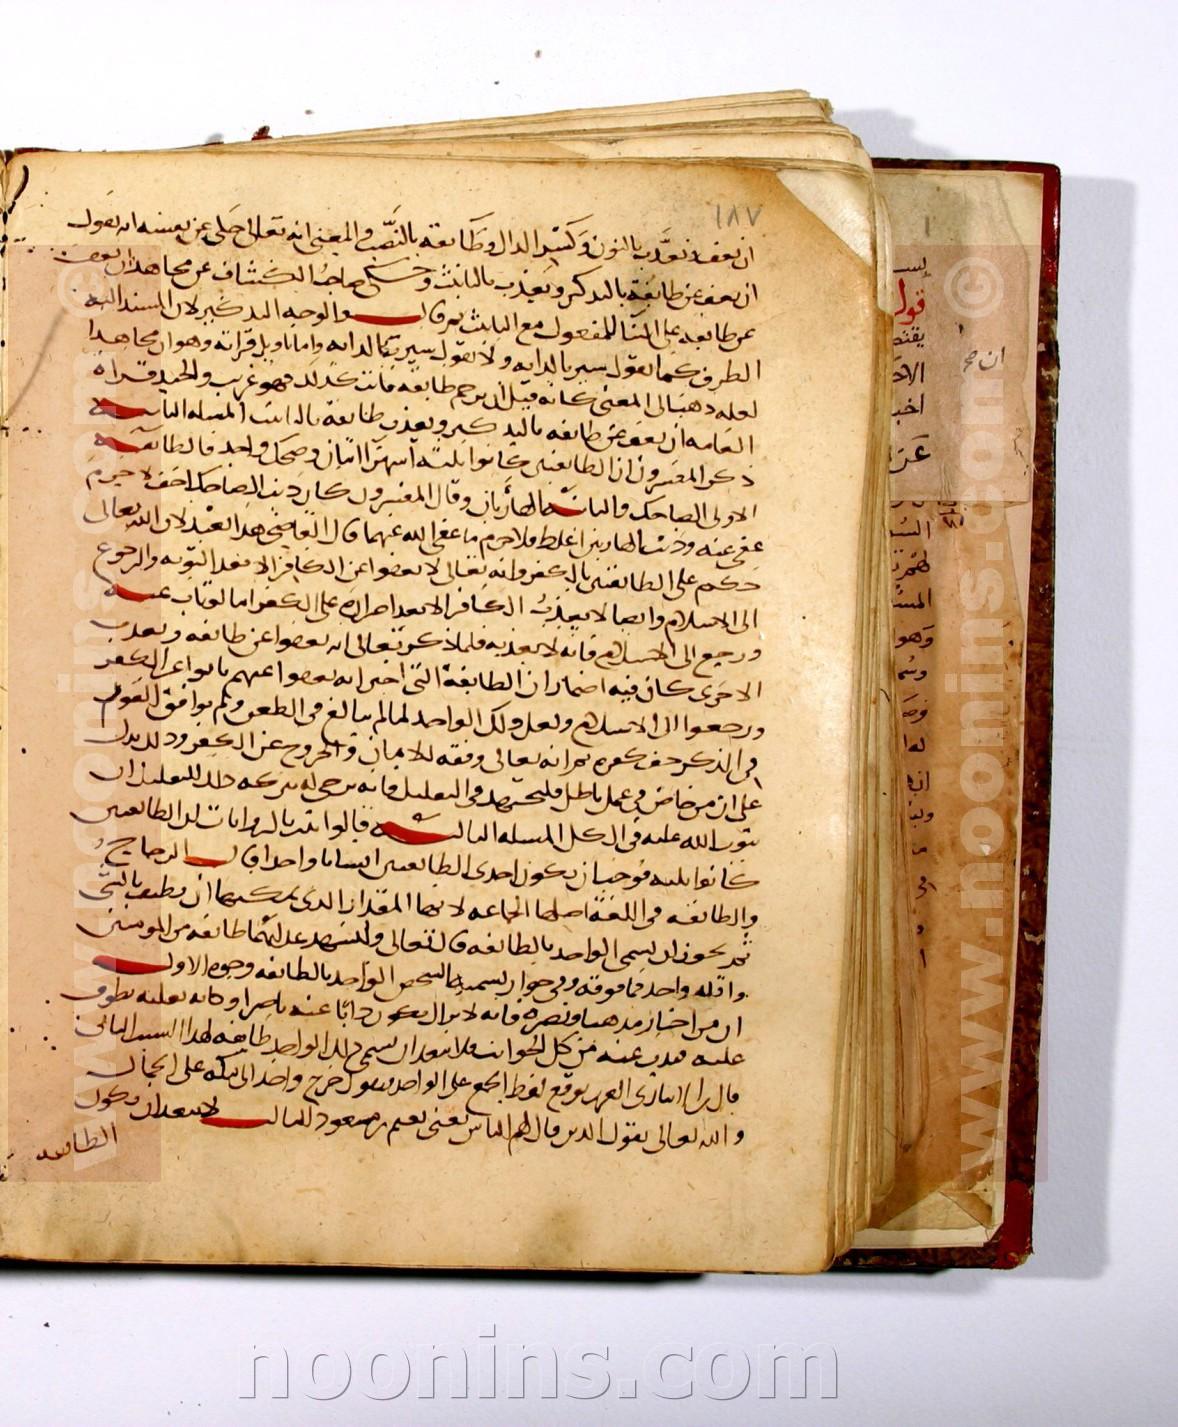 ١٨٧
ان نعف نعذب بالنون وكسر الدال وطائفة بالنصب والمعنى انه تعالى حكى عن نفسه انه يقول
ان يعف عن طائفة بالتذكير وتعذب بالتانيث وحكى صاحب الكشاف عن مجاهد ان تعف
عن طائفة على البنا للمفعول مع التانيث ثم قال والوجه التذكير لان المسند اليه
الظرف كما تقول سير بالدابه ولا تقول سيرت بالدابه واما تاويل قراته وهو ان مجاهدا
لعله ذهب الى المعنى كانه قيل ان ترحم طائفة فانث كذلك وهو غريب والجيد قراة
العامه ان يعف عن طايفه بالتذكير وتعذب طائفة بالتانيث المسله الثانيه
ذكر المفسرون ان الطايفتين كانوا ثلثة استهزا اثنان وضحك واحد فالطائفة
الاولى الضاحك والثانية الهازيان وقال المفسرون كان ذنب الضاحك اخف لا جرم
عفى عنه وذنب الهازيين اغلظ فلا جرم ما عفى الله عنهما قال القاضى هذا بعيد لان الله تعالى
حكم على الطائفتين بالكفر وانه تعالى لا يعفوا عن الكافر الا بعد التوبه والرجوع
الى الاسلام وايضا لا يعذب الكافر الا بعد اصراره على الكفر اما لو تاب عنه
ورجع الى الاسلام فانه لا يعذبه فلما ذكر تعالى انه يعفوا عن طائفه ويعذب
الاخرى كان فيه اضمار ان الطايفة التى اخبر انه يعفوا عنهم تابوا عن الكفر
ورجعوا الى الاسلام ولعل ذلك الواحد لما لم يبالغ فى الطعن ولم يوافق القوم
فى الذكر خف كفره ثم انه تعالى وفقه للايمان والخروج عن الكفر وذلك يدل
على ان من خاض فى عمل باطل فليجتهد فى التقليل فانه يرجى له ببركه ذلك التقليل ان
يتوب الله عليه فى الكل المسله الثالثه قالوا ثبت بالروايات ان الطائفتين
كانوا ثلثه فوجب ان يكون احدى الطايفتين انسانا واحدا قال الزجاج
والطائفه فى اللغة اصلها الجماعه لانها المقدار الذى يمكنها ان تطيف بالشى
ثم يجوز ان يسمى الواحد بالطائفه قال تعالى وليشهد عذابهما طائفه من المومنين
واقله واحد فما فوقه وفى جواز تسميه الشخص الواحد بالطائفه وجوه الاول
ان من اختار مذهبا ونصره فانه لا يزال يكون ذابا عنه ناصرا وكانه بقلبه يطوف
عليه فيذب عنه من كل الجوانب فلا يبعد ان يسمى ذلك الواحد طائفه لهذا السبب الثانى
قال ابن الانبارى العرب توقع لفظ الجمع على الواحد فتقول خرج واحد الى مكه على الجمال
والله تعالى يقول الذين قال لهم الناس يعنى نعيم بن مسعود الثالث لا يبعد ان يكون
الطائفه